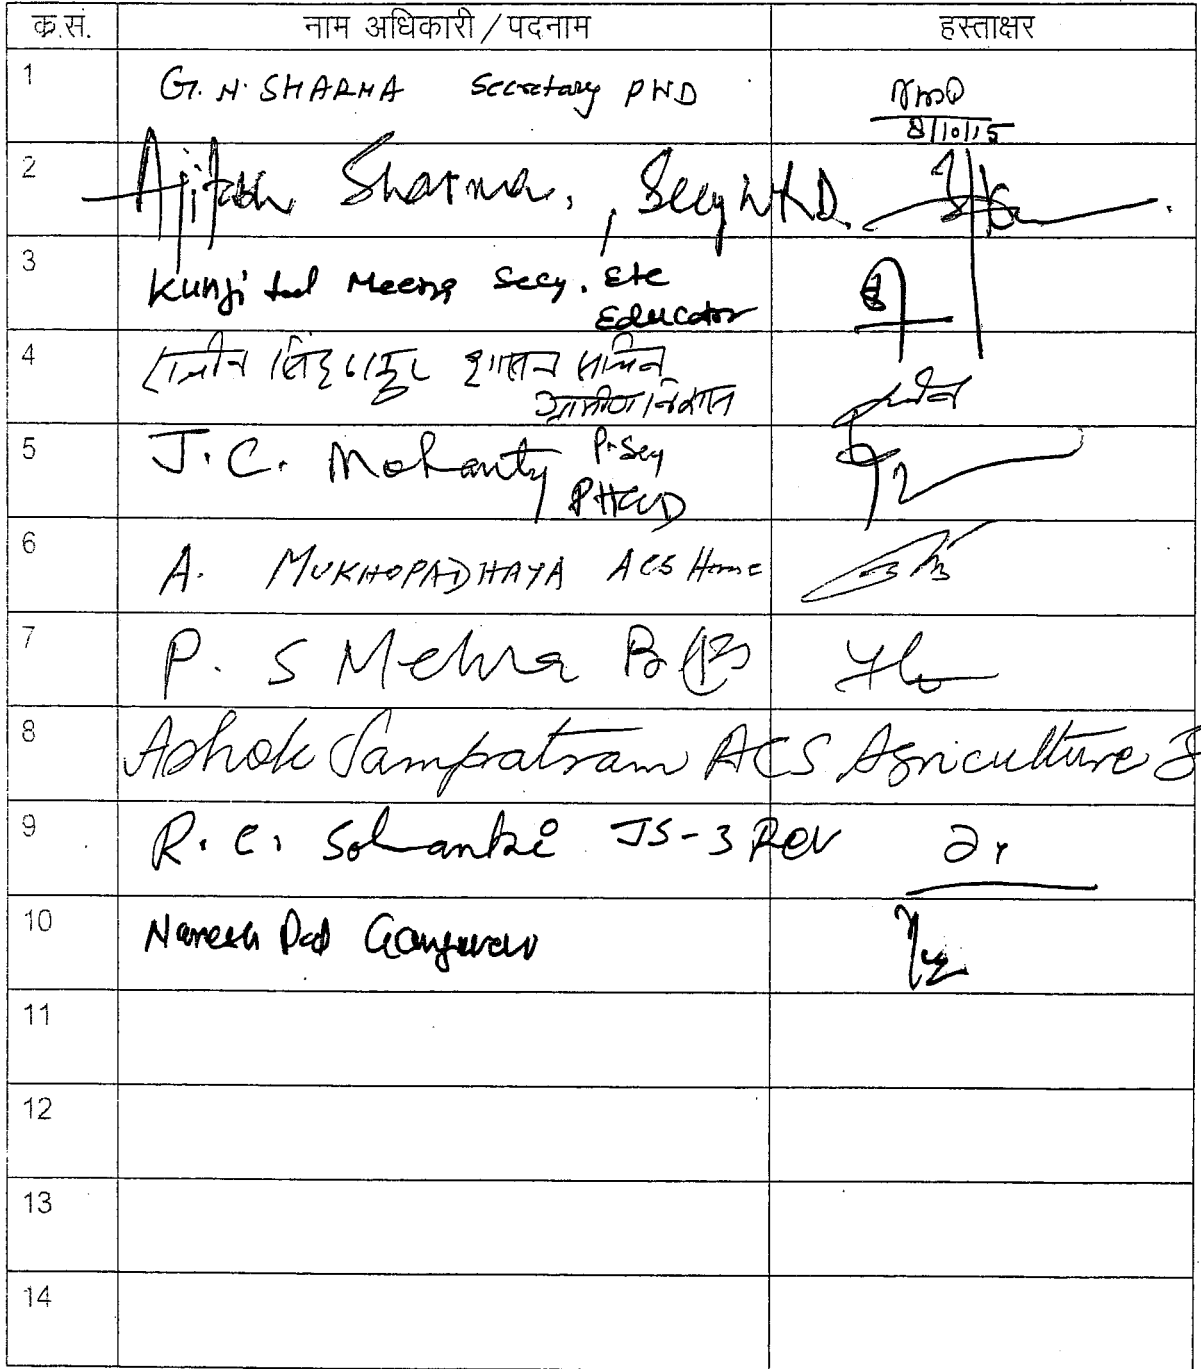 क्र.सं. नाम अधिकारी / पदनाम हस्ताक्षर
1 G. N. SHARMA Secretary PWD
8/10/15
2 Ajitabh Sharma, Secy
3 Kunji Lal Meena Secy. Ele
Educator
4 सिंह शासन सचिव
ग्रामीण विकास
5 J. C. Mohanty P. Secy
PHED
6 A. MUKHOPADHAYA ACS Home
7 P. S Mehra
8 Ashok Sampatram ACS Agriculture
9 R. C. Solanki JS-3 Rev
10 Naresh Pal Gangwar
11
12
13
14